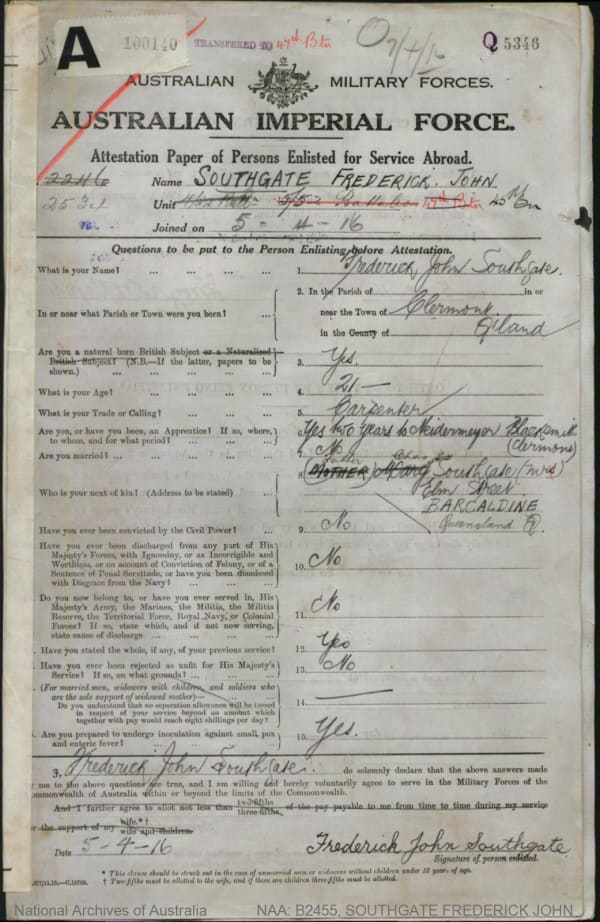 A 100140 TRANSFERED TO 47th Btn Q 5346
AUSTRALIAN MILITARY FORCES.
AUSTRALIAN IMPERIAL FORCE.
Attestation Paper of Persons Enlisted for Service Abroad.
2246 Name SOUTHGATE FREDERICK. JOHN.
2531 Unit Battalion 47th Btn 45th Bn
Joined on 5-4-16
Questions to be put to the Person Enlisting before Attestation.
What is your Name? ... ... ... ... 1. Frederick John Southgate.
2. In the Parish of in or
In or near what Parish or Town were you born? ... near the Town of Clermont
in the County of Q'land
Are you a natural born British Subject or a Naturalized
British Subject? (N.B.—If the latter, papers to be 3. Yes.
shown.) ... ... ... ...
What is your Age? ... ... ... ... 4. 21 —
What is your Trade or Calling? ... ... ... 5. Carpenter
Are you, or have you been, an Apprentice? If so, where, 6. Yes two Years to Neidermeyer Blacksmith
to whom, and for what period? ... ... ... (Clermont)
Are you married? ... ... ... ... 7. No
8. Father
(MOTHER) Southgate (Mrs)
Who is your next of kin? (Address to be stated) ... Elm Street
BARCALDINE
Queensland
Have you ever been convicted by the Civil Power? ... 9. No
Have you ever been discharged from any part of His
Majesty's Forces, with Ignominy, or as Incorrigible and
Worthless, or on account of Conviction of Felony, or of a
Sentence of Penal Servitude, or have you been dismissed
with Disgrace from the Navy? ... ... ... 10. No
Do you now belong to, or have you ever served in, His
Majesty's Army, the Marines, the Militia, the Militia
Reserve, the Territorial Force, Royal Navy, or Colonial
Forces? If so, state which, and if not now serving, 11. No
state cause of discharge ... ... ...
Have you stated the whole, if any, of your previous service? 12. Yes
Have you ever been rejected as unfit for His Majesty's
Service? If so, on what grounds? ... ... 13. No
(For married men, widowers with children, and soldiers who
are the sole support of widowed mother)— 14. —
Do you understand that no separation allowance will be issued
in respect of your service beyond an amount which
together with pay would reach eight shillings per day?
Are you prepared to undergo inoculation against small pox
and enteric fever? ... ... ... 15. Yes.
Frederick John Southgate. do solemnly declare that the above answers made
me to the above questions are true, and I am willing and hereby voluntarily agree to serve in the Military Forces of the
Commonwealth of Australia within or beyond the limits of the Commonwealth.
And I further agree to allot not less than two-fifths three-fifths of the pay payable to me from time to time during my service
the support of my wife.*† wife and children.
Date 5-4-16 Frederick John Southgate
Signature of person enlisted.
* This clause should be struck out in the case of unmarried men or widowers without children under 18 years of age.
† Two-fifths must be allotted to the wife, and if there are children three-fifths must be allotted.
National Archives of Australia NAA: B2455, SOUTHGATE FREDERICK JOHN